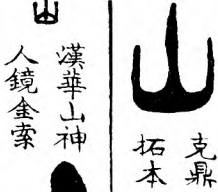 山
克鼎
拓本
山
漢華山神
人鏡金索